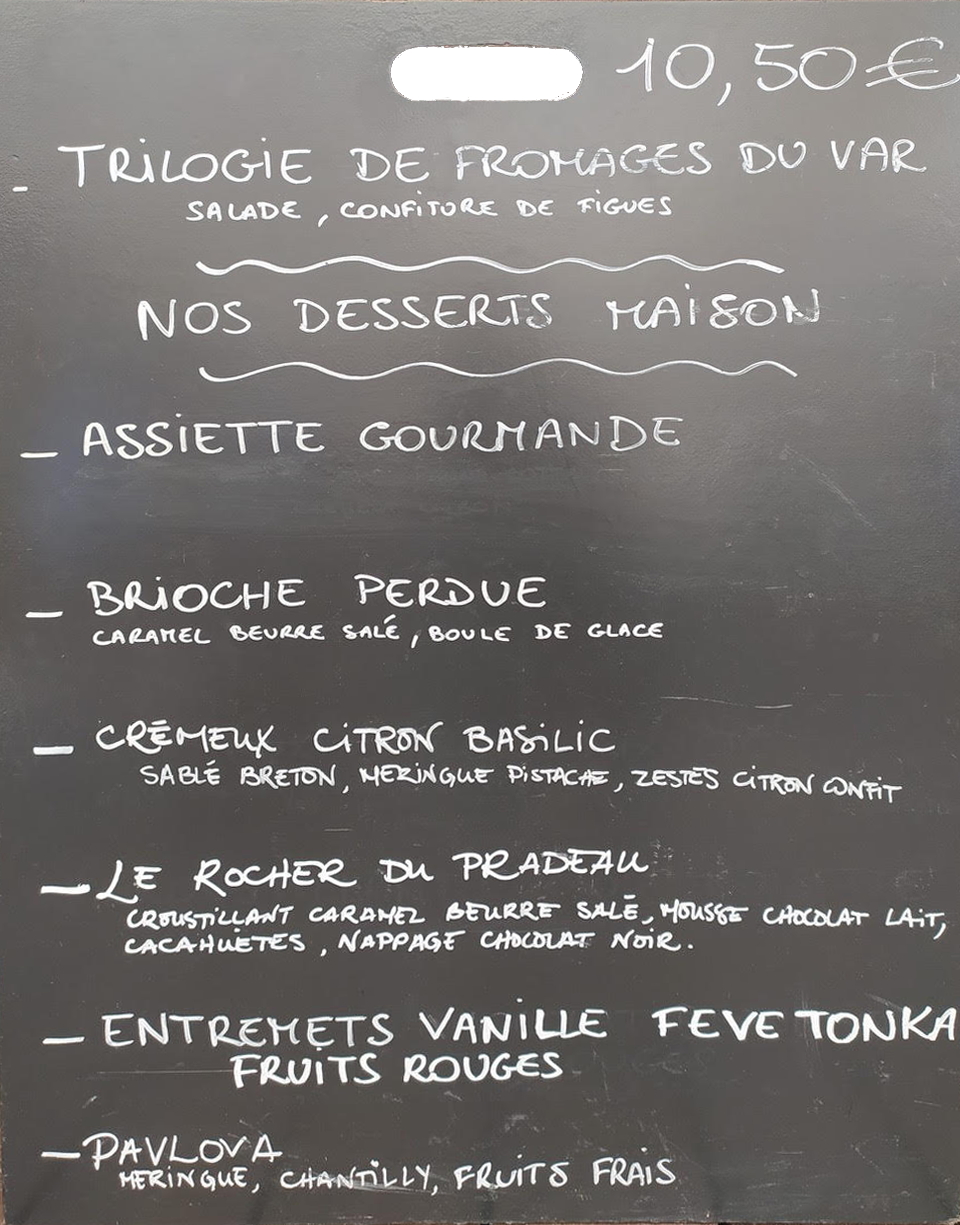 10,50€
- TRiLOGiE DE FROMAGES DU VAR
SALADE, CONFiTURE DE FiGUES
NOS DESSERTS MAiSON
- ASSiETTE GOURMANDE
- BRiOCHE PERDUE
CARAMEL BEURRE SALÉ, BOULE DE GLACE
- CRÉMEUX CiTRON BASiLiC
SABLÉ BRETON, MERiNGUE PiSTACHE, ZESTES CiTRON CONFiT
- LE ROCHER DU PRADEAU
CROUSTiLLANT CARAMEL BEURRE SALÉ, MOUSSE CHOCOLAT LAiT,
CACAHUETES, NAPPAGE CHOCOLAT NOiR.
- ENTREMETS VANiLLE FEVE TONKA
FRUiTS ROUGES
- PAVLOVA
MERiNGUE, CHANTiLLY, FRUiTS FRAiS